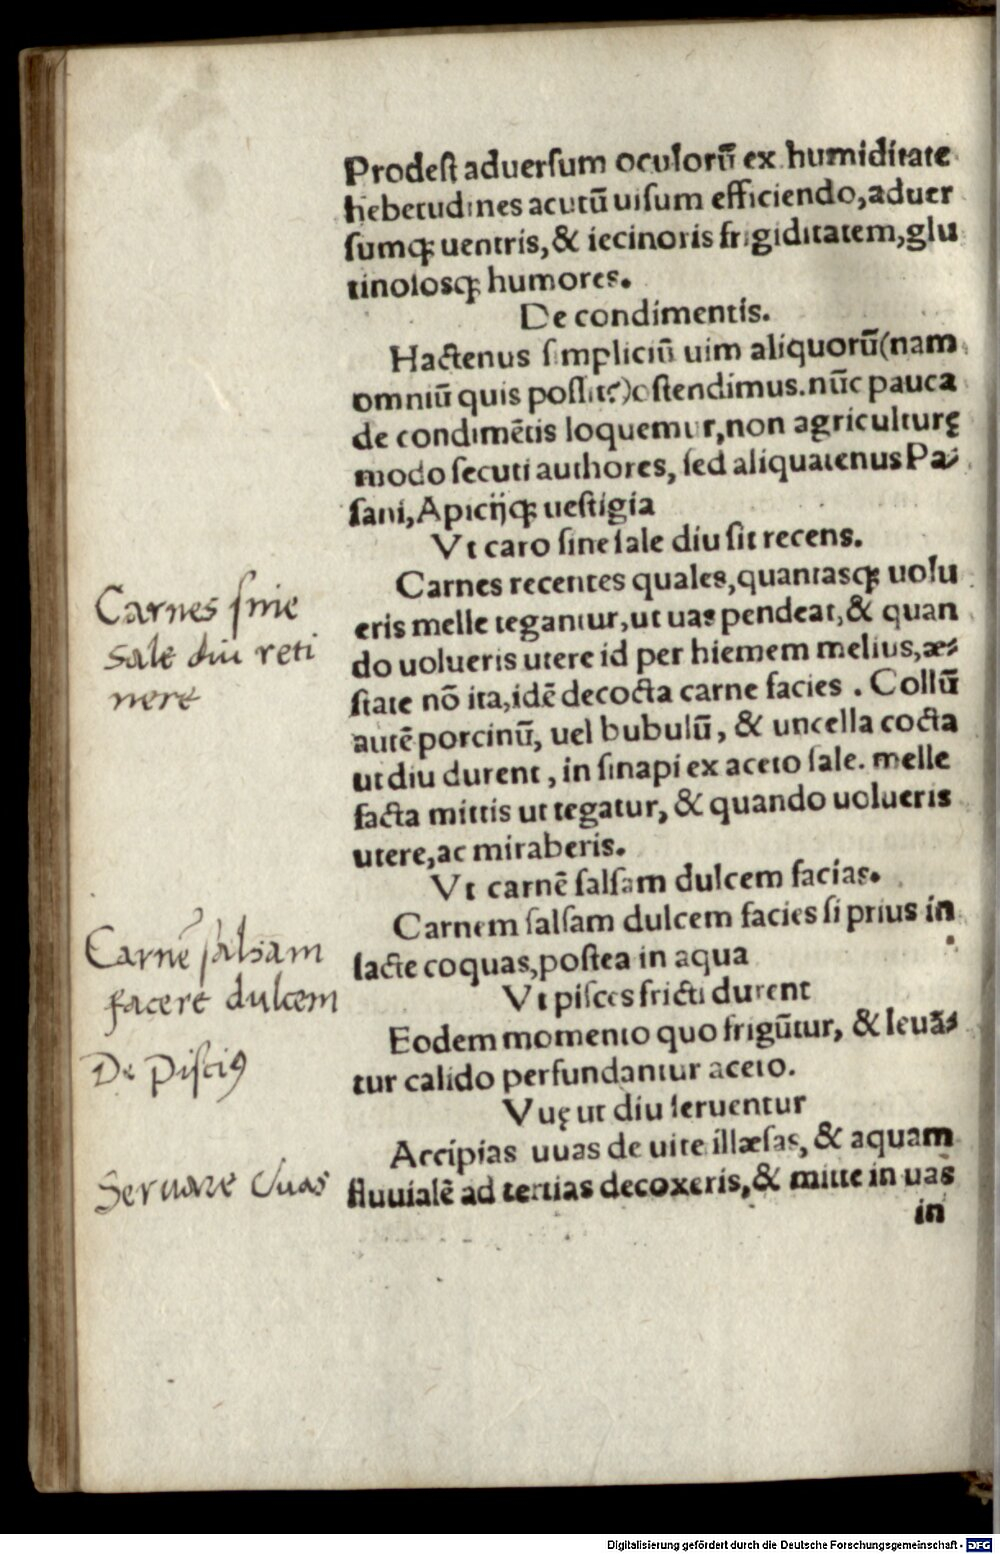 Prodeſt aduerſum oculorū ex humiditate
hebetudines acutū uiſum efficiendo, aduer
ſumq; uentris, & iecinoris frigiditatem, glu
tinoſosq; humores.
De condimentis.
Hactenus ſimpliciū uim aliquorū (nam
omniū quis poſſit?) oſtendimus. nūc pauca
de condimētis loquemur, non agriculturę
modo ſecuti authores, ſed aliquatenus Pa-
ſani, Apicijq; ueſtigia
Vt caro ſine ſale diu ſit recens.
Carnes recentes quales, quantasq; uolu
eris melle tegantur, ut uas pendeat, & quan
do uolueris utere id per hiemem melius, æ-
ſtate nō ita, idē decocta carne facies. Collū
autē porcinū, uel bubulū, & uncella cocta
ut diu durent, in ſinapi ex aceto ſale. melle
facta mittis ut tegatur, & quando uolueris
utere, ac miraberis.
Vt carnē ſalſam dulcem facias.
Carnem ſalſam dulcem facies ſi prius in
lacte coquas, poſtea in aqua
Vt piſces fricti durent
Eodem momento quo frigūtur, & leuā-
tur calido perfundantur aceto.
Vuę ut diu ſeruentur
Accipias uuas de uite illæſas, & aquam
fluuialē ad tertias decoxeris, & mitte in uas
in
Carnes ſine
Sale diu reti
nere
Carnē ſalsam
facere dulcem
De Piſciꝰ
Seruare Uuas
Digitalisierung gefördert durch die Deutsche Forschungsgemeinschaft - DFG